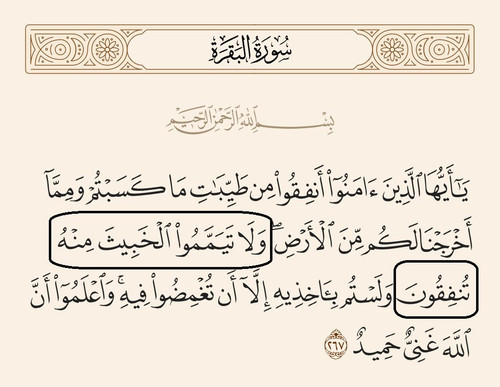 سُورَةُ البَقَرَةِ
بِسْمِ اللَّهِ الرَّحْمَٰنِ الرَّحِيمِ
يَـٰٓأَيُّهَا ٱلَّذِينَ ءَامَنُوٓا۟ أَنفِقُوا۟ مِن طَيِّبَـٰتِ مَا كَسَبْتُمْ وَمِمَّآ
أَخْرَجْنَا لَكُم مِّنَ ٱلْأَرْضِ ۖ وَلَا تَيَمَّمُوا۟ ٱلْخَبِيثَ مِنْهُ
تُنفِقُونَ وَلَسْتُم بِـَٔاخِذِيهِ إِلَّآ أَن تُغْمِضُوا۟ فِيهِ ۚ وَٱعْلَمُوٓا۟ أَنَّ
ٱللَّهَ غَنِىٌّ حَمِيدٌ ٢٦٧